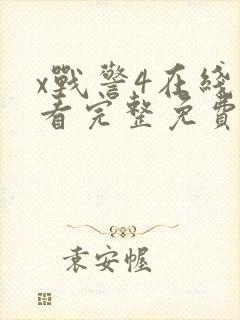 x戰警4在綫
看完整免費
袁安幄